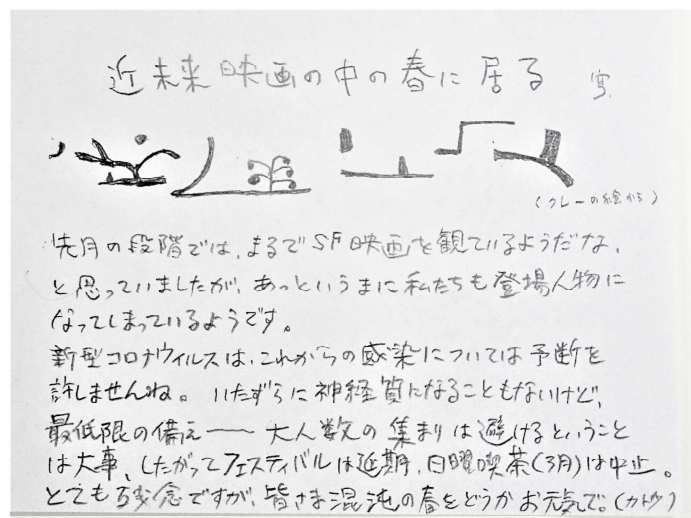 近未来映画の中の春に居る 宮
(クレーの絵から)
先月の段階では、まるでSF映画を観ているようだな、
と思っていましたが、あっというまに私たちも登場人物に
なってしまっているようです。
新型コロナウィルスは、これからの感染については予断を
許しませんね。いたずらに神経質になることもないけど、
最低限の備え——大人数の集まりは避けるということ
は大事、したがってフェスティバルは延期、日曜喫茶(3月)は中止。
とても残念ですが、皆さま混沌の春をどうかお元気で。(カトウ)